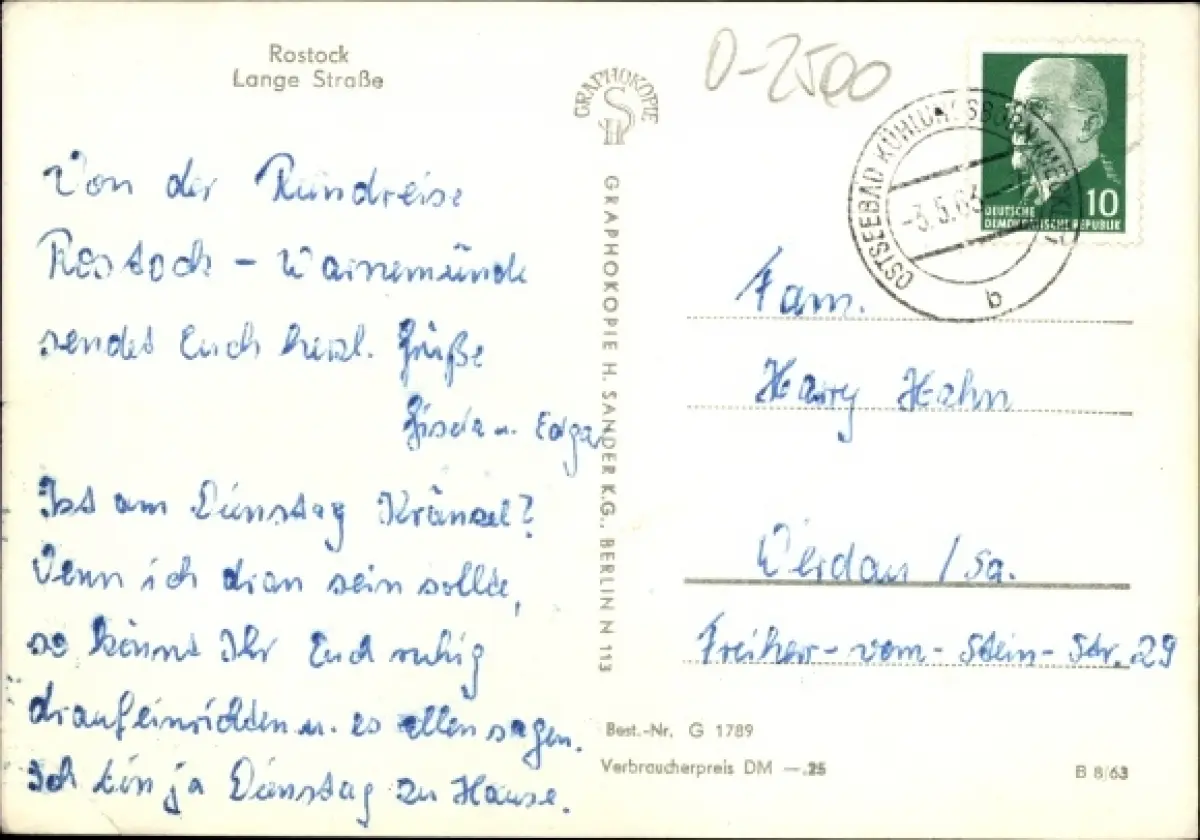 Rostock
Lange Straße
Von der Rundreise
Rostock - Warnemünde
sendet Euch herzl. Grüße
Gisela u. Edgar
Ist am Dienstag Kränzel?
Wenn ich dran sein sollte,
so könnt Ihr Euch ruhig
drauf einrichten u. es allen sagen.
Ich bin ja Dienstag zu Hause.
GRAPHOKOPIE
SH
GRAPHOKOPIE H. SANDER K.G., BERLIN N 113
O-2500
OSTSEEBAD KÜHLUNGSBORN (MECKL)
-3.5.63-
b
10
DEUTSCHE
DEMOKRATISCHE REPUBLIK
Fam.
Harry Hahn
Werdau / Sa.
Freiherr-vom-Stein-Str. 29
Best.-Nr. G 1789
Verbraucherpreis DM —.25
B 8/63